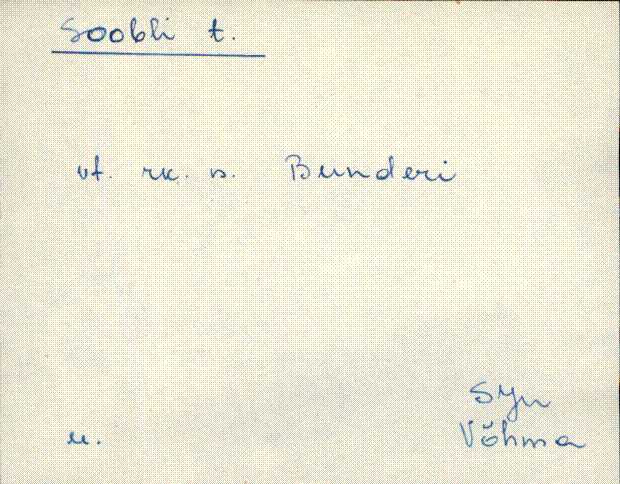 Soobli t.
vt. rk. s. Bunderi
SJn
u. Võhma